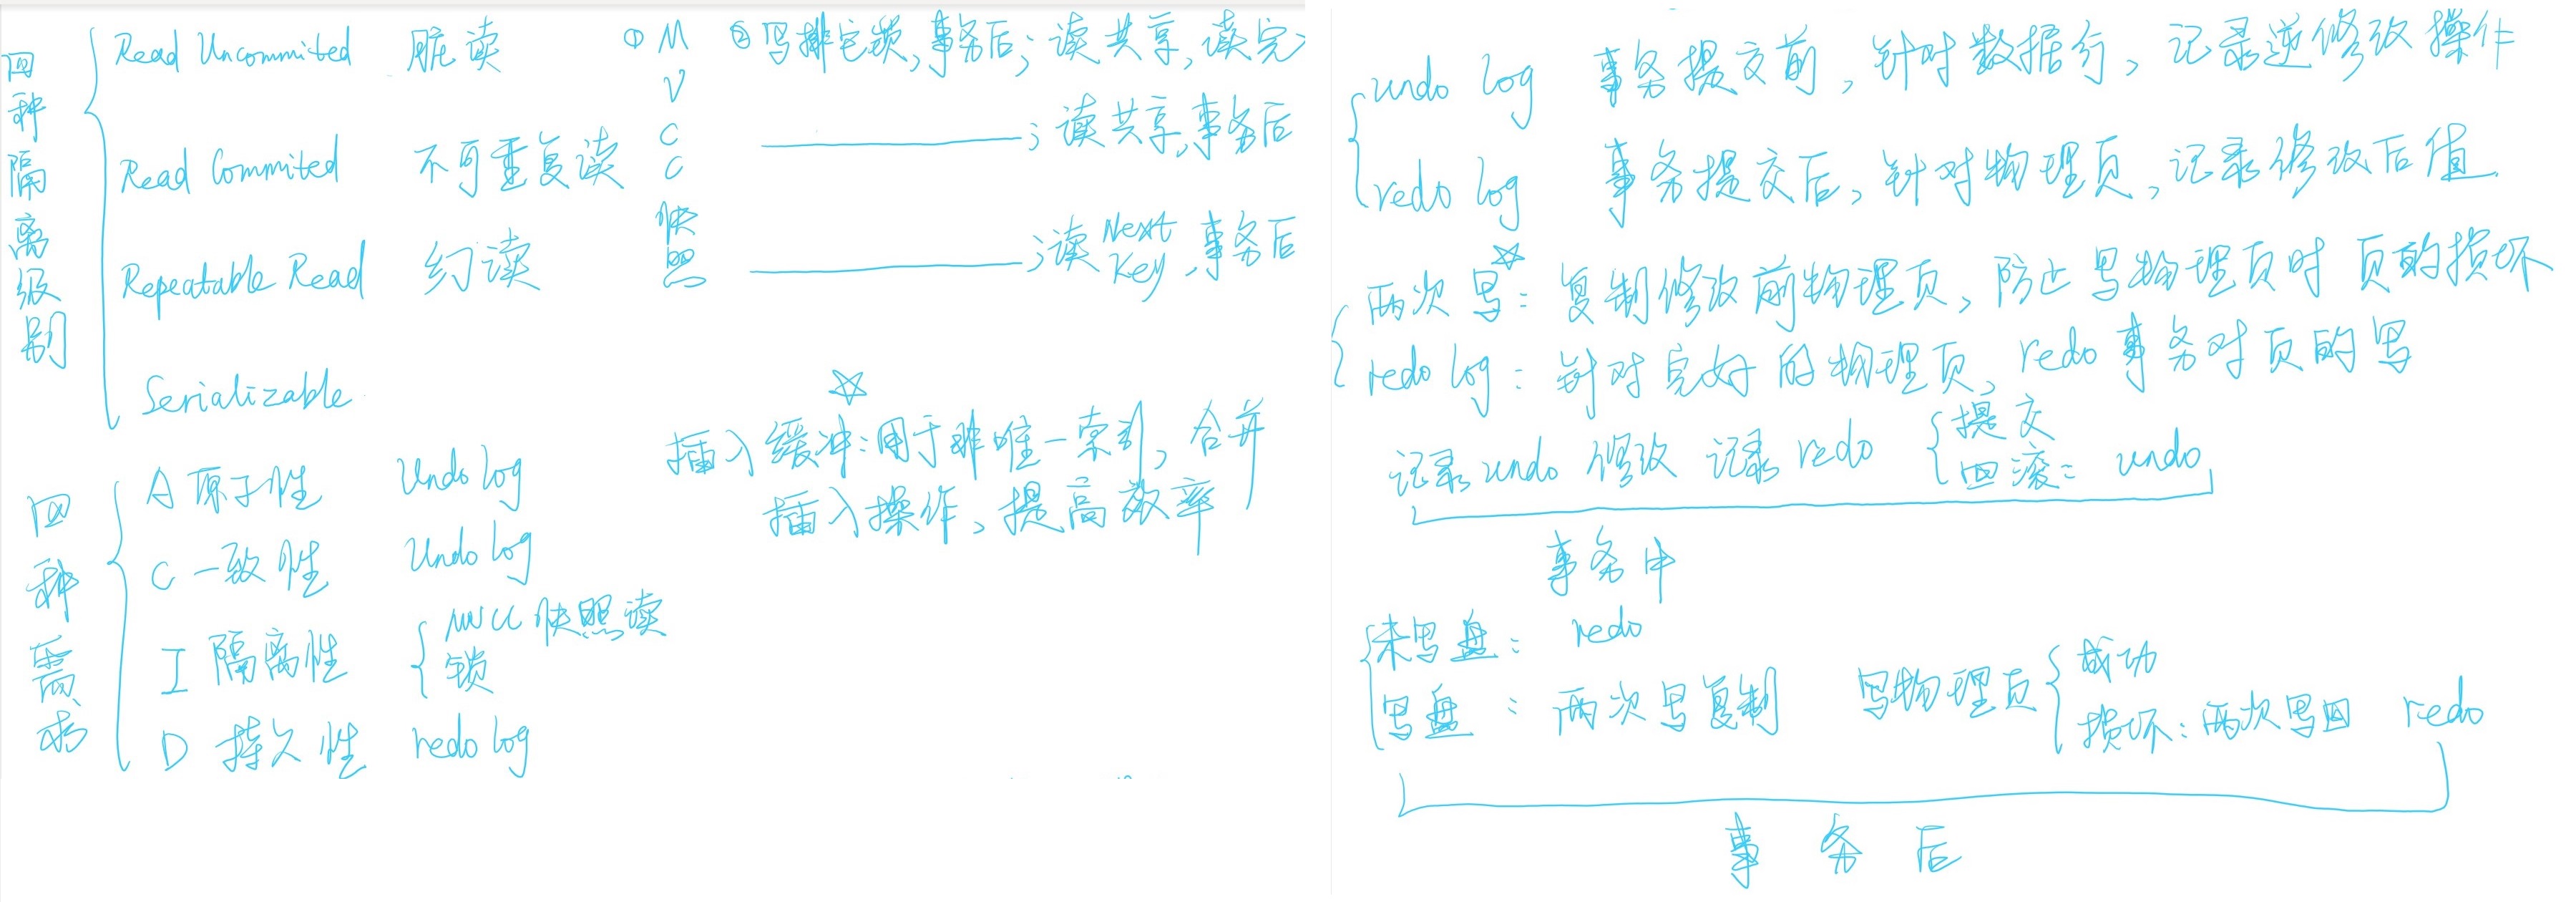 四种隔离级别
Read Uncommited 脏读
Read Commited 不可重复读
Repeatable Read 幻读
Serializable
① MVCC快照
② 写排它锁,事务后;读共享,读完
;读共享,事务后
;读 Next Key,事务后
插入缓冲:用于非唯一索引,合并
插入操作、提高效率
四种需求
A 原子性 Undo log
C 一致性 Undo log
I 隔离性 MVCC 快照读
锁
D 持久性 redo log
undo log 事务提交前,针对数据行,记录逆修改操作
redo log 事务提交后,针对物理页,记录修改后值
两次写:复制修改前物理页,防止写物理页时页的损坏
redo log:针对完好的物理页,redo事务对页的写
记录undo 修改 记录redo 提交
回滚: undo
事务中
未写盘: redo
写盘: 两次写复制 写物理页 成功
损坏:两次写回 redo
事务后